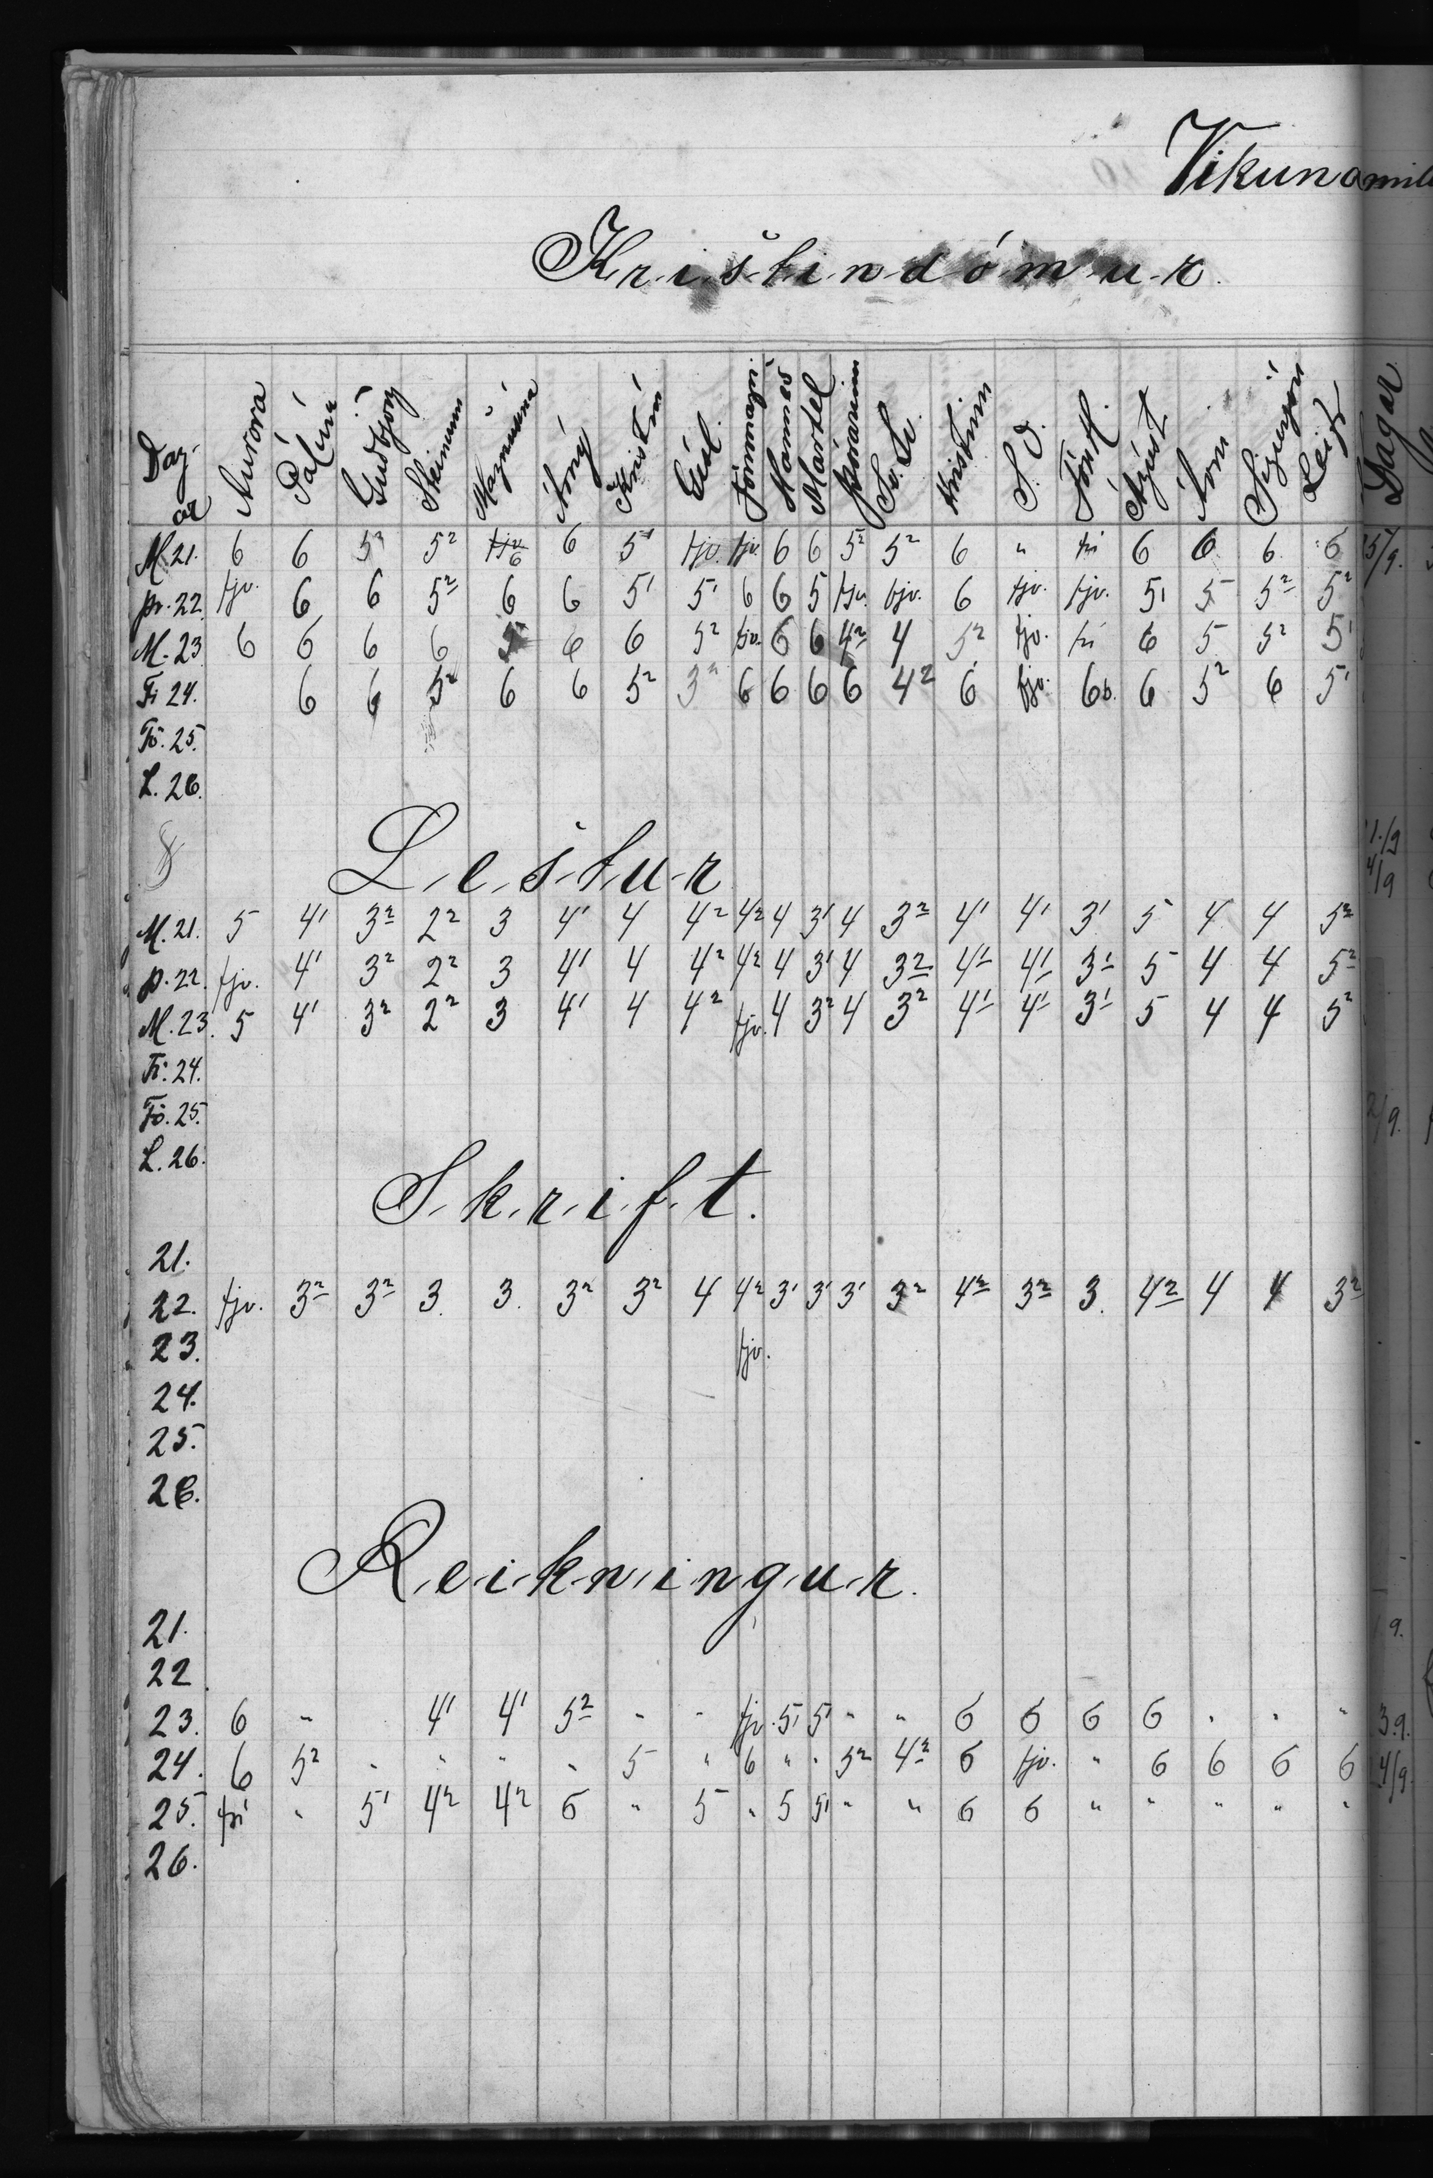 Vikuna
Kristindómur.
Dagar Aurora Pálína Guðbjörg Steinunn Magnúsína Árný Kristín Gísl. Jónmagn. Hannes Martel Þórarinn Sv. Sv. Kristinn S. O. Jón H. Ágúst Árni Sigurjón Leifr Dagar
M. 21. 6 6 5² 5² 6 6 5¹ fjv. fjv. 6 6 5² 5² 6 " frí 6 6 6 6
Þr. 22. fjv. 6 6 5² 6 6 5¹ 5¹ 6 6 5 fjv. fjv. 6 fjv. fjv. 5¹ 5 5² 5²
M. 23 6 6 6 6 5¹ 6 6 5² fjv. 6 6 4² 4 5² fjv. frí 6 5 5² 5¹
Fi 24. 6 6 5² 6 6 5² 3² 6 6 6 6 4² 6 fjv. 6b. 6 5² 6 5¹
Fö. 25.
L. 26.
Lestur
M. 21. 5 4¹ 3² 2² 3 4¹ 4 4² 4² 4 3¹ 4 3² 4¹ 4¹ 3¹ 5 4 4 5²
Þ. 22. fjv. 4¹ 3² 2² 3 4¹ 4 4² 4² 4 3¹ 4 3² 4¹ 4¹ 3¹ 5 4 4 5²
M. 23. 5 4¹ 3² 2² 3 4¹ 4 4² fjv. 4 3² 4 3² 4¹ 4¹ 3¹ 5 4 4 5²
Fi. 24.
Fö. 25.
L. 26.
Skrift.
21.
22. fjv. 3² 3² 3 3. 3² 3² 4 4² 3¹ 3¹ 3¹ 3² 4² 3² 3. 4² 4 4 3²
23. fjv.
24.
25.
26.
Reikningur.
21.
22.
23. 6 " 4¹ 4¹ 5² " " fjv. 5¹ 5¹ " " 6 6 6 6 " " "
24. 6 5² " " " " 5 " 6 " " 5² 4² 6 fjv. " 6 6 6 6
25. frí " 5¹ 4² 4² 6 " 5 " 5 5¹ " " 6 6 " " " " "
26.